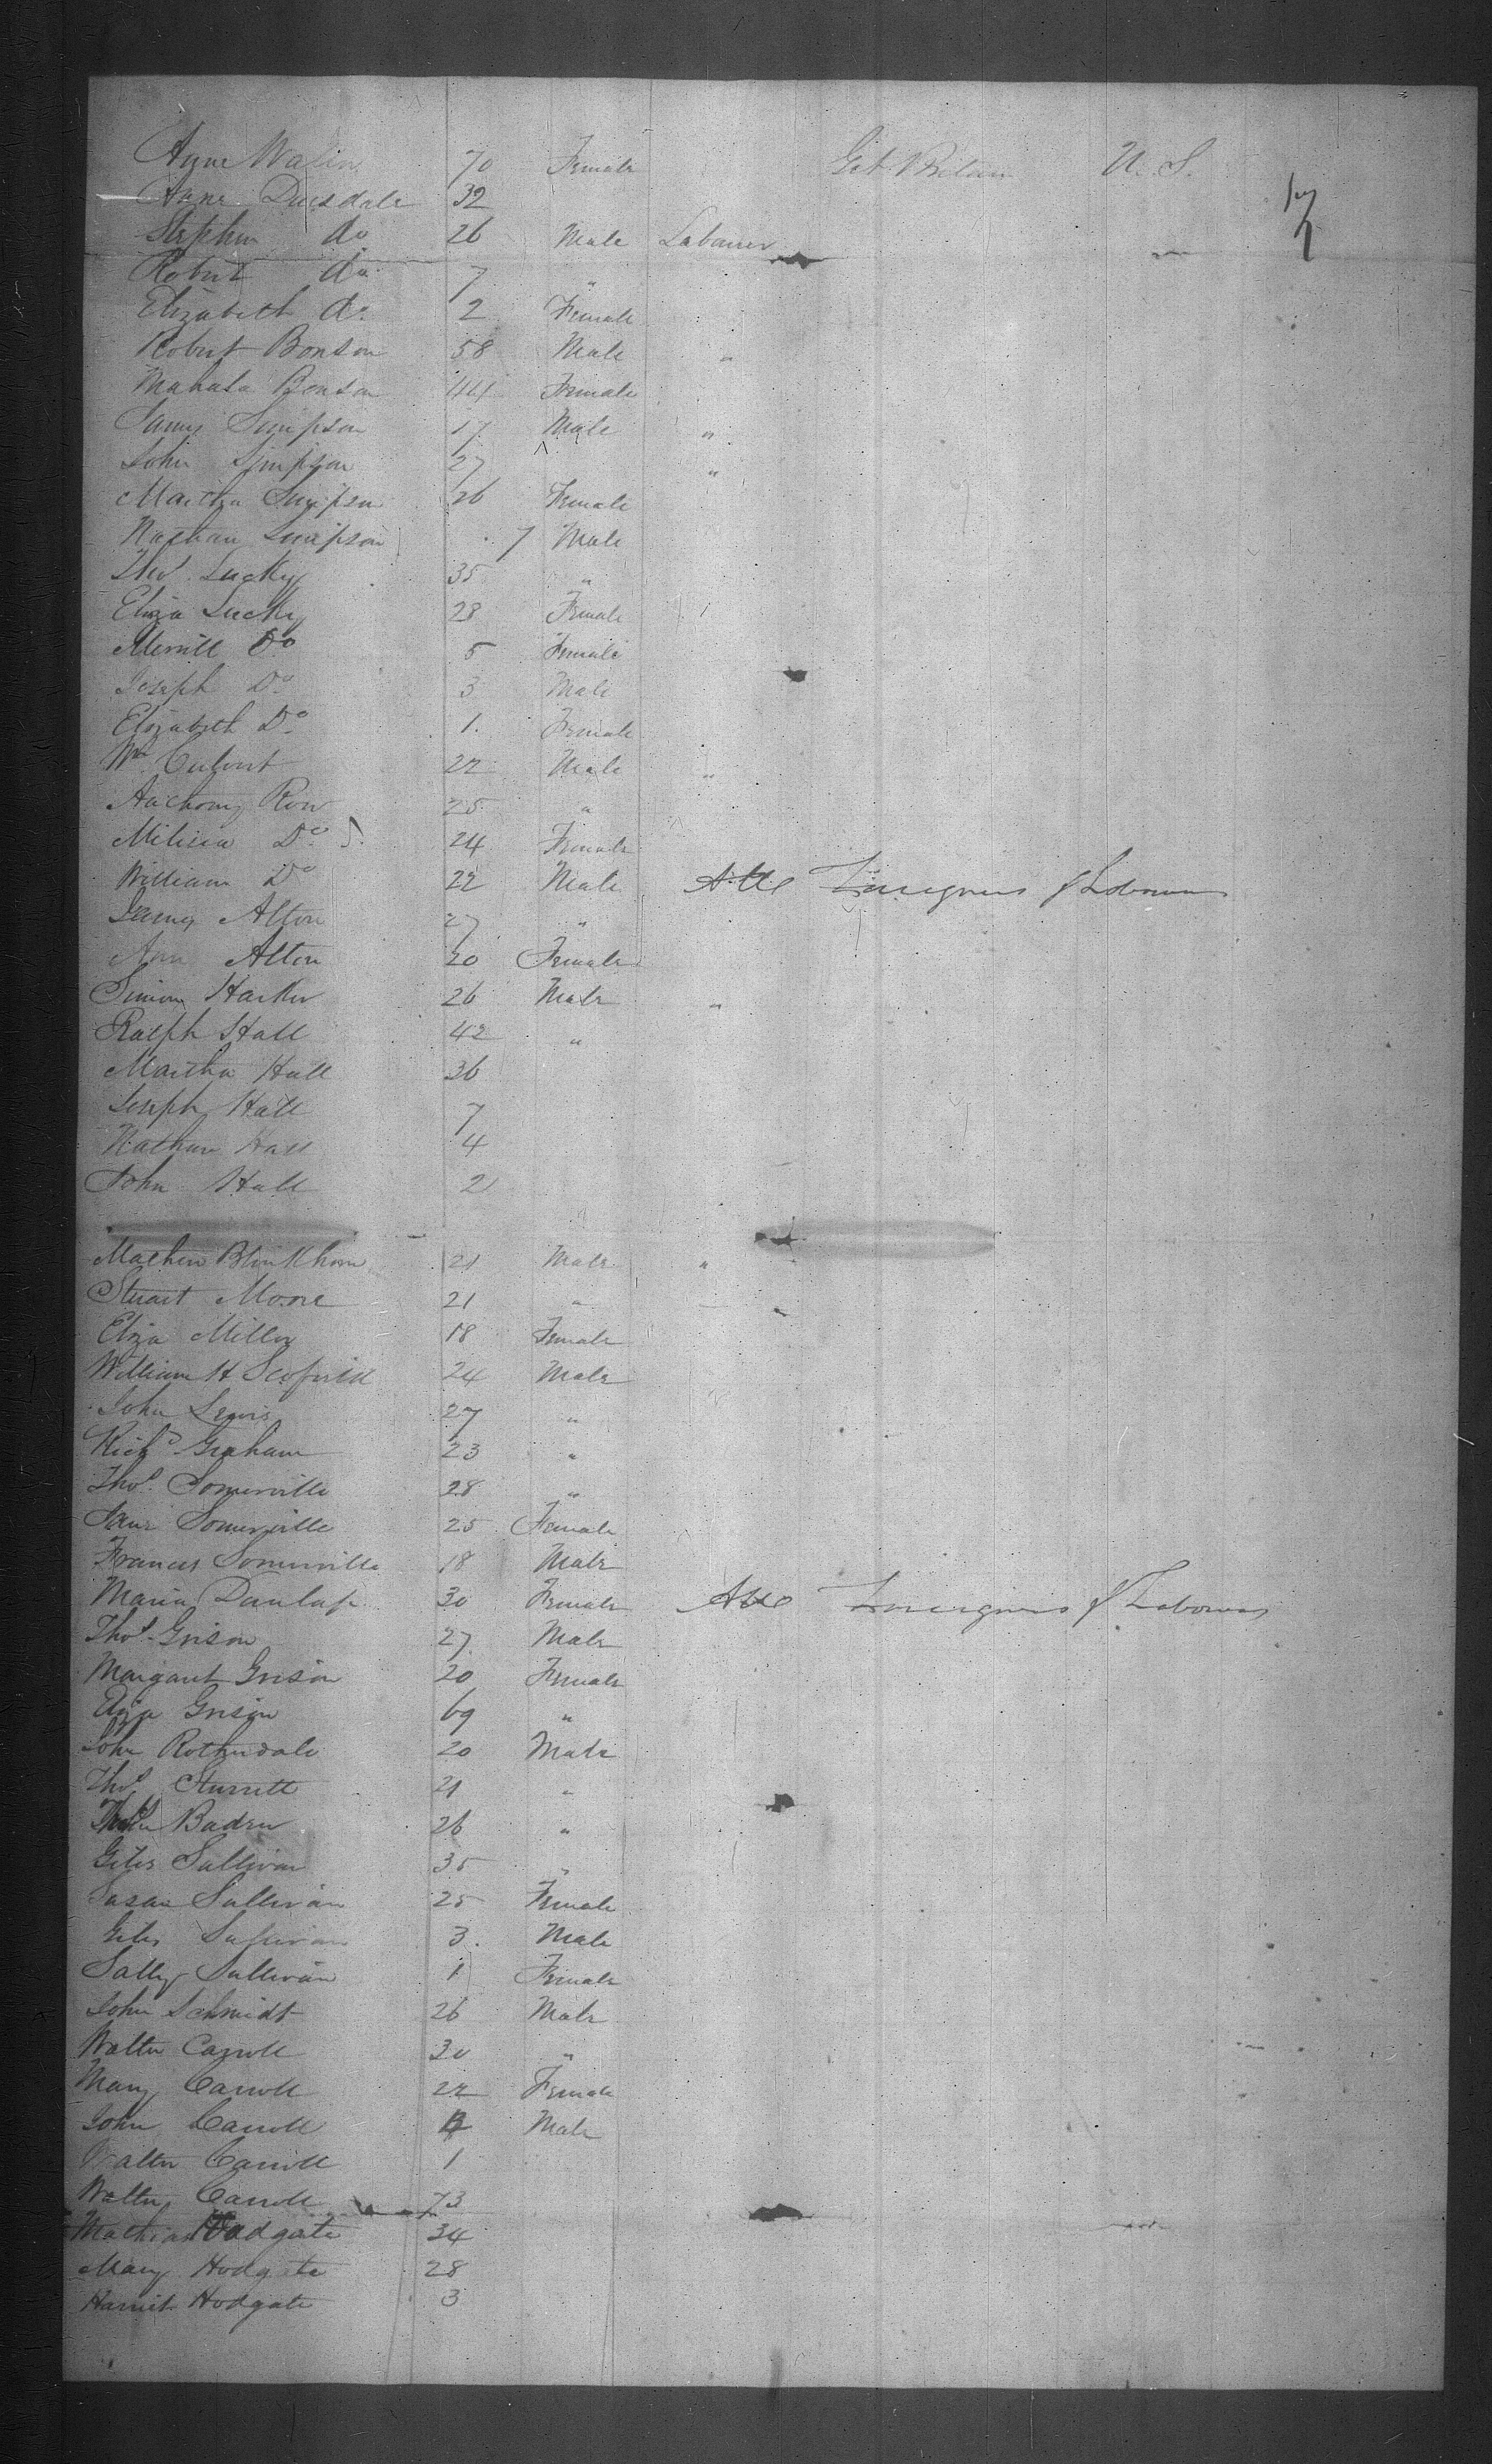 Anne Walin 70 Female Gt Britain U. S.
Anne Duesdale 32
Stephen do 26 Male Labourer
Robert do 7 "
Elizabeth do 2 Female
Robert Bonson 58 Male "
Mahala Bonson 44 Female
James Simpson 17 Male "
John Simpson 27 "
Martha Simpson 26 Female
Nathan Simpson 7 Male
Thos Lucky 35 "
Eliza Lucky 28 Female
Merrill Do 5 Female
Joseph Do 3 Male
Elizabeth Do 1. Female
Wm Culvert 22 Male "
Anthony Row 25 "
Milisia Do 24 Female
William Do 22 Male All Foreigners & Laborours
James Alton 27 "
Ann Alton 20 Female
Simon Harker 26 Male "
Ralph Hall 42 "
Martha Hall 36
Joseph Hall 7
Nathan Hall 4
John Hall 2
Mathew Blinkhorn 21 Male "
Stuart Moore 21 "
Eliza Miller 18 Female
William H Scofield 24 Male
John Lewis 27 "
Richd Graham 23 "
Thos Somerville 28 "
Jane Somerville 25 Female
Frances Somerville 18 Male
Maria Dunlap 30 Female All Foreigners & Laborours
Thos Grison 27 Male
Margaret Grison 20 Female
Grison 69 "
John Rotherdale 20 Male
Thos Sturrett 21 "
Baden 26 "
Giles Sullivan 35 "
Susan Sullivan 25 Female
Giles Sullivan 3. Male
Sally Sullivan 1 Female
John Schmidt 26 Male
Walter Carroll 30 "
Mary Carroll 22 Female
John Carroll 4 Male
Walter Carroll 1
Walter Carroll 73
Mathias Hodgate 34
Mary Hodgate 28
Harriet Hodgate 3